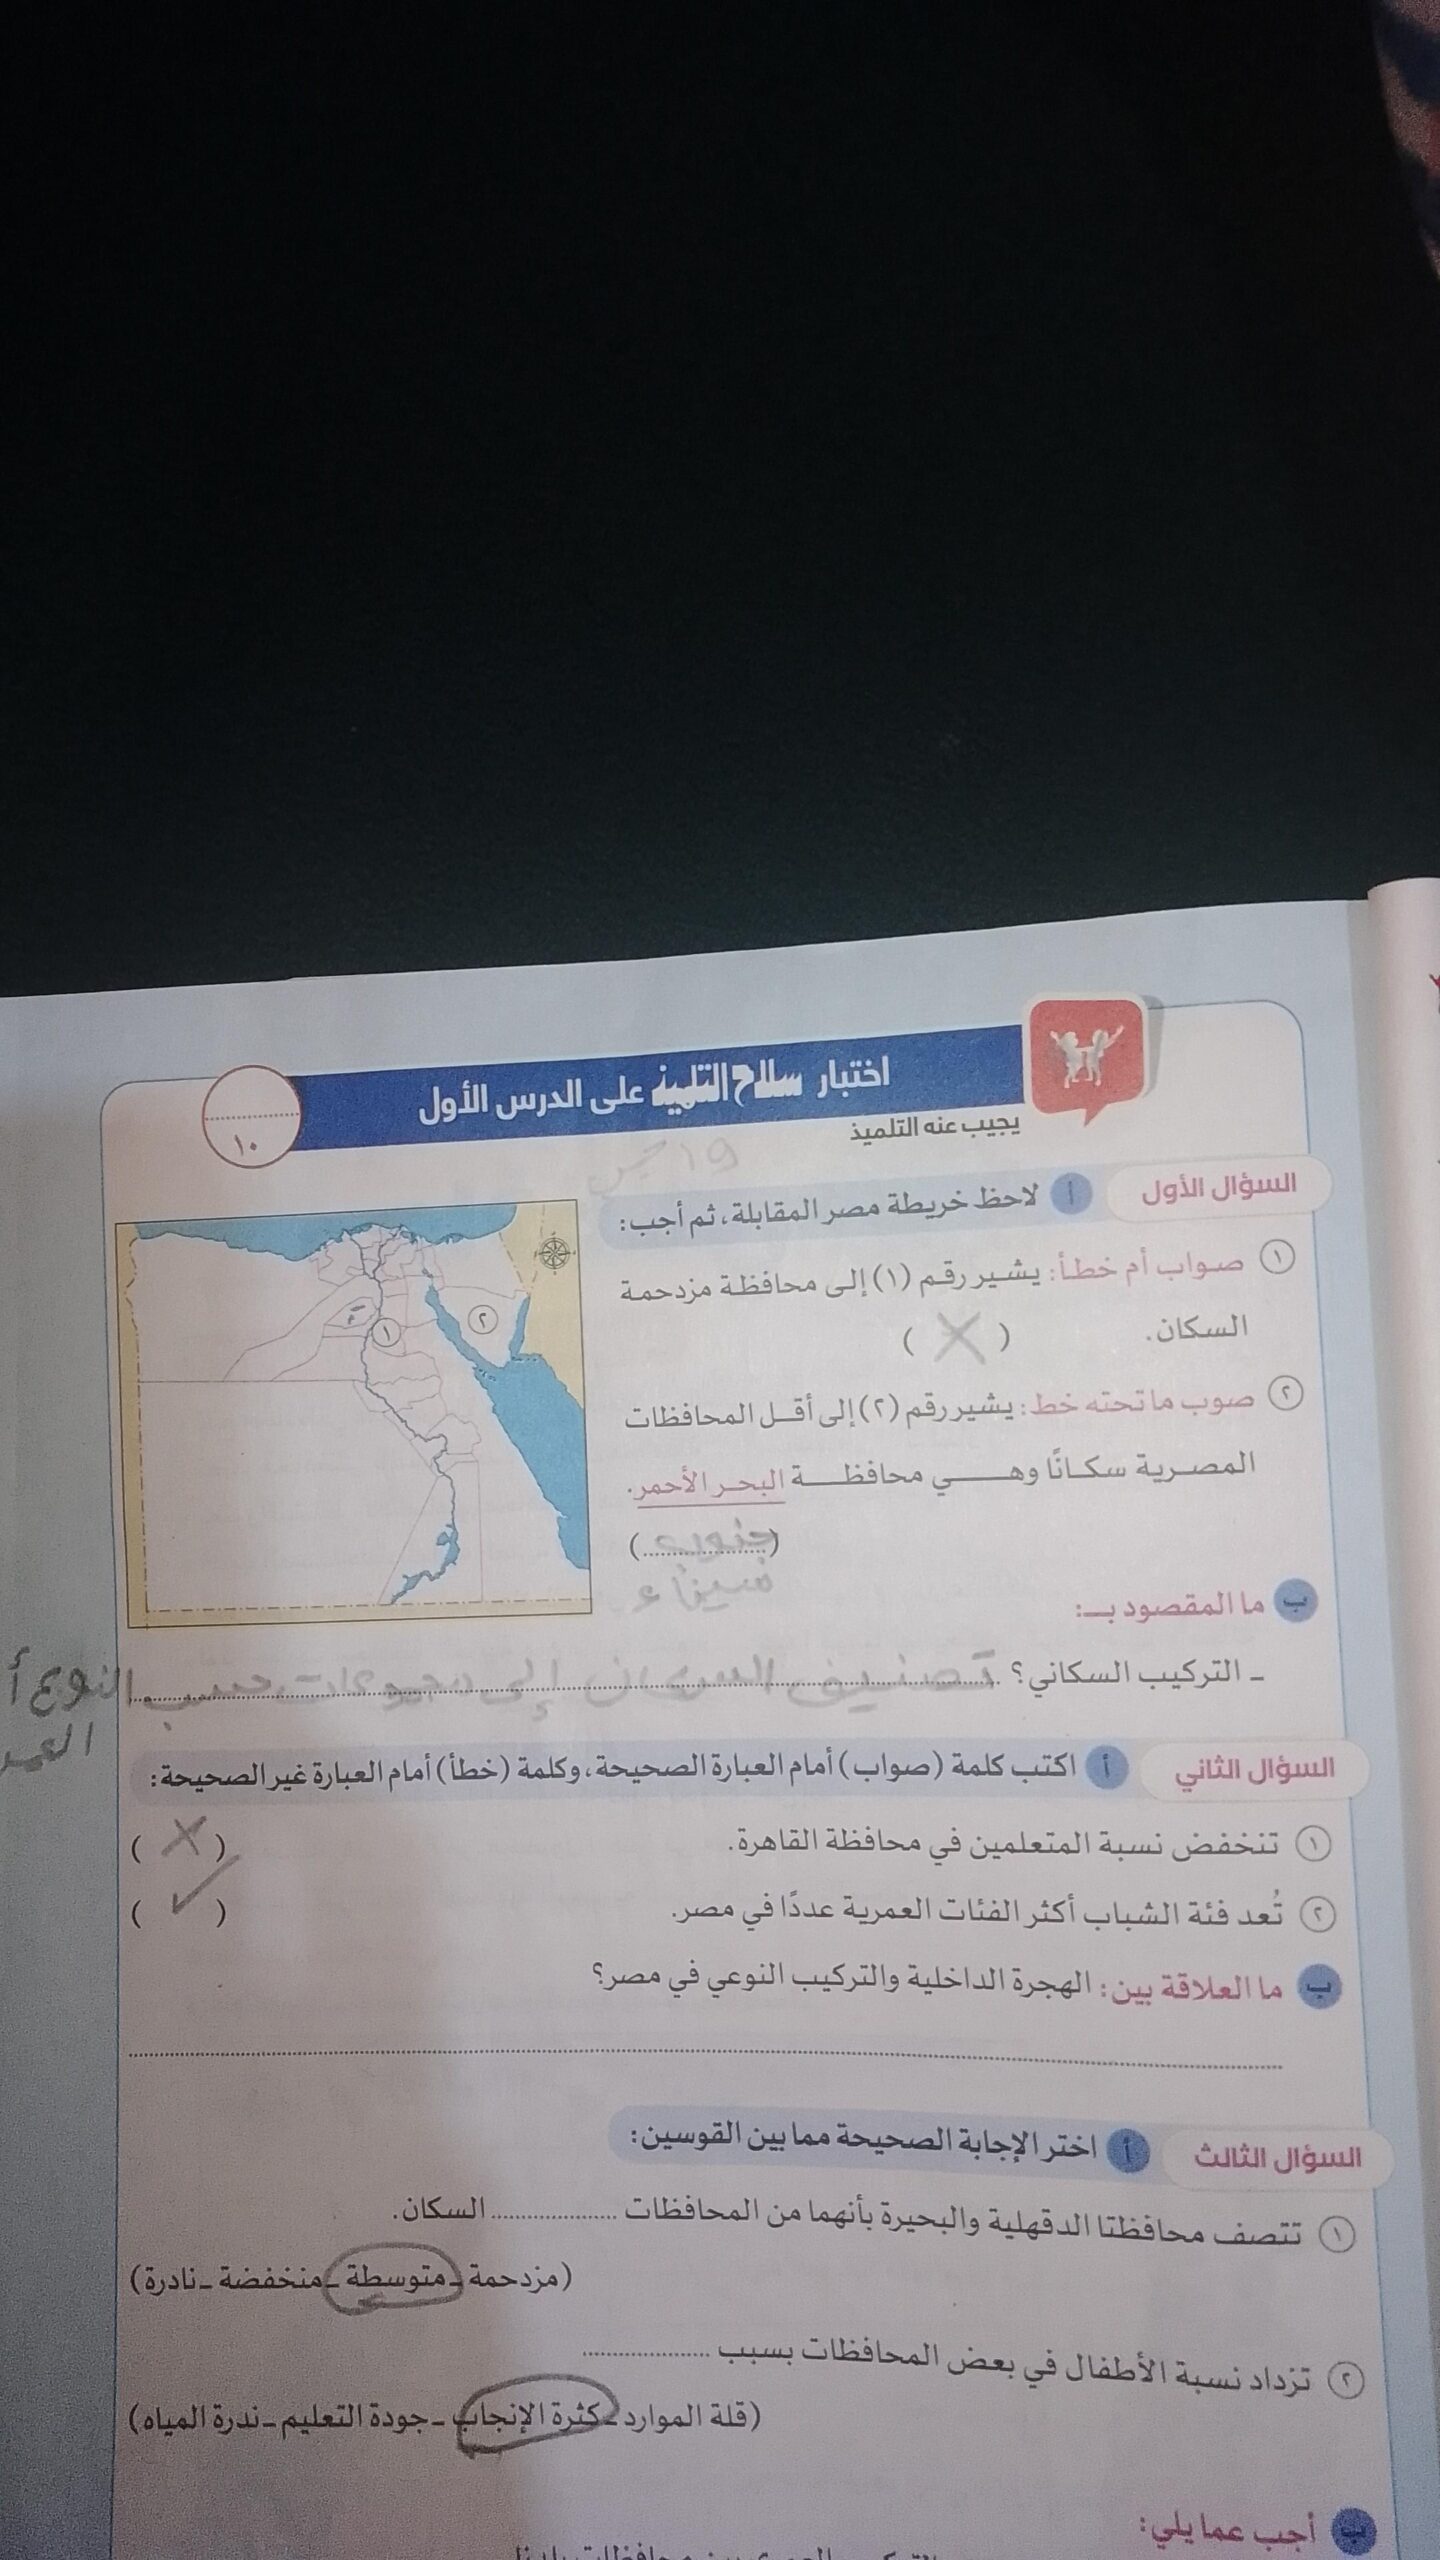 اختبار سلاح التلميذ على الدرس الأول
١٠
يجيب عنه التلميذ
١٩
السؤال الأول أ لاحظ خريطة مصر المقابلة، ثم أجب:
١ صواب أم خطأ: يشير رقم (١) إلى محافظة مزدحمة
السكان. ( X )
٢ صوب ما تحته خط: يشير رقم (٢) إلى أقل المحافظات
المصرية سكانًا وهي محافظة البحر الأحمر.
(جنوب)
سيناء
١
٢
ب ما المقصود بـ:
ـ التركيب السكاني؟ تصنيف السكان إلى مجموعات حسب النوع أ
العمر
السؤال الثاني أ اكتب كلمة (صواب) أمام العبارة الصحيحة، وكلمة (خطأ) أمام العبارة غير الصحيحة:
١ تنخفض نسبة المتعلمين في محافظة القاهرة. ( X )
٢ تُعد فئة الشباب أكثر الفئات العمرية عددًا في مصر. ( ✓ )
ب ما العلاقة بين: الهجرة الداخلية والتركيب النوعي في مصر؟
السؤال الثالث أ اختر الإجابة الصحيحة مما بين القوسين:
١ تتصف محافظتا الدقهلية والبحيرة بأنهما من المحافظات .................... السكان.
(مزدحمة ـ متوسطة ـ منخفضة ـ نادرة)
٢ تزداد نسبة الأطفال في بعض المحافظات بسبب ....................
(قلة الموارد ـ كثرة الإنجاب ـ جودة التعليم ـ ندرة المياه)
ب أجب عما يلي: